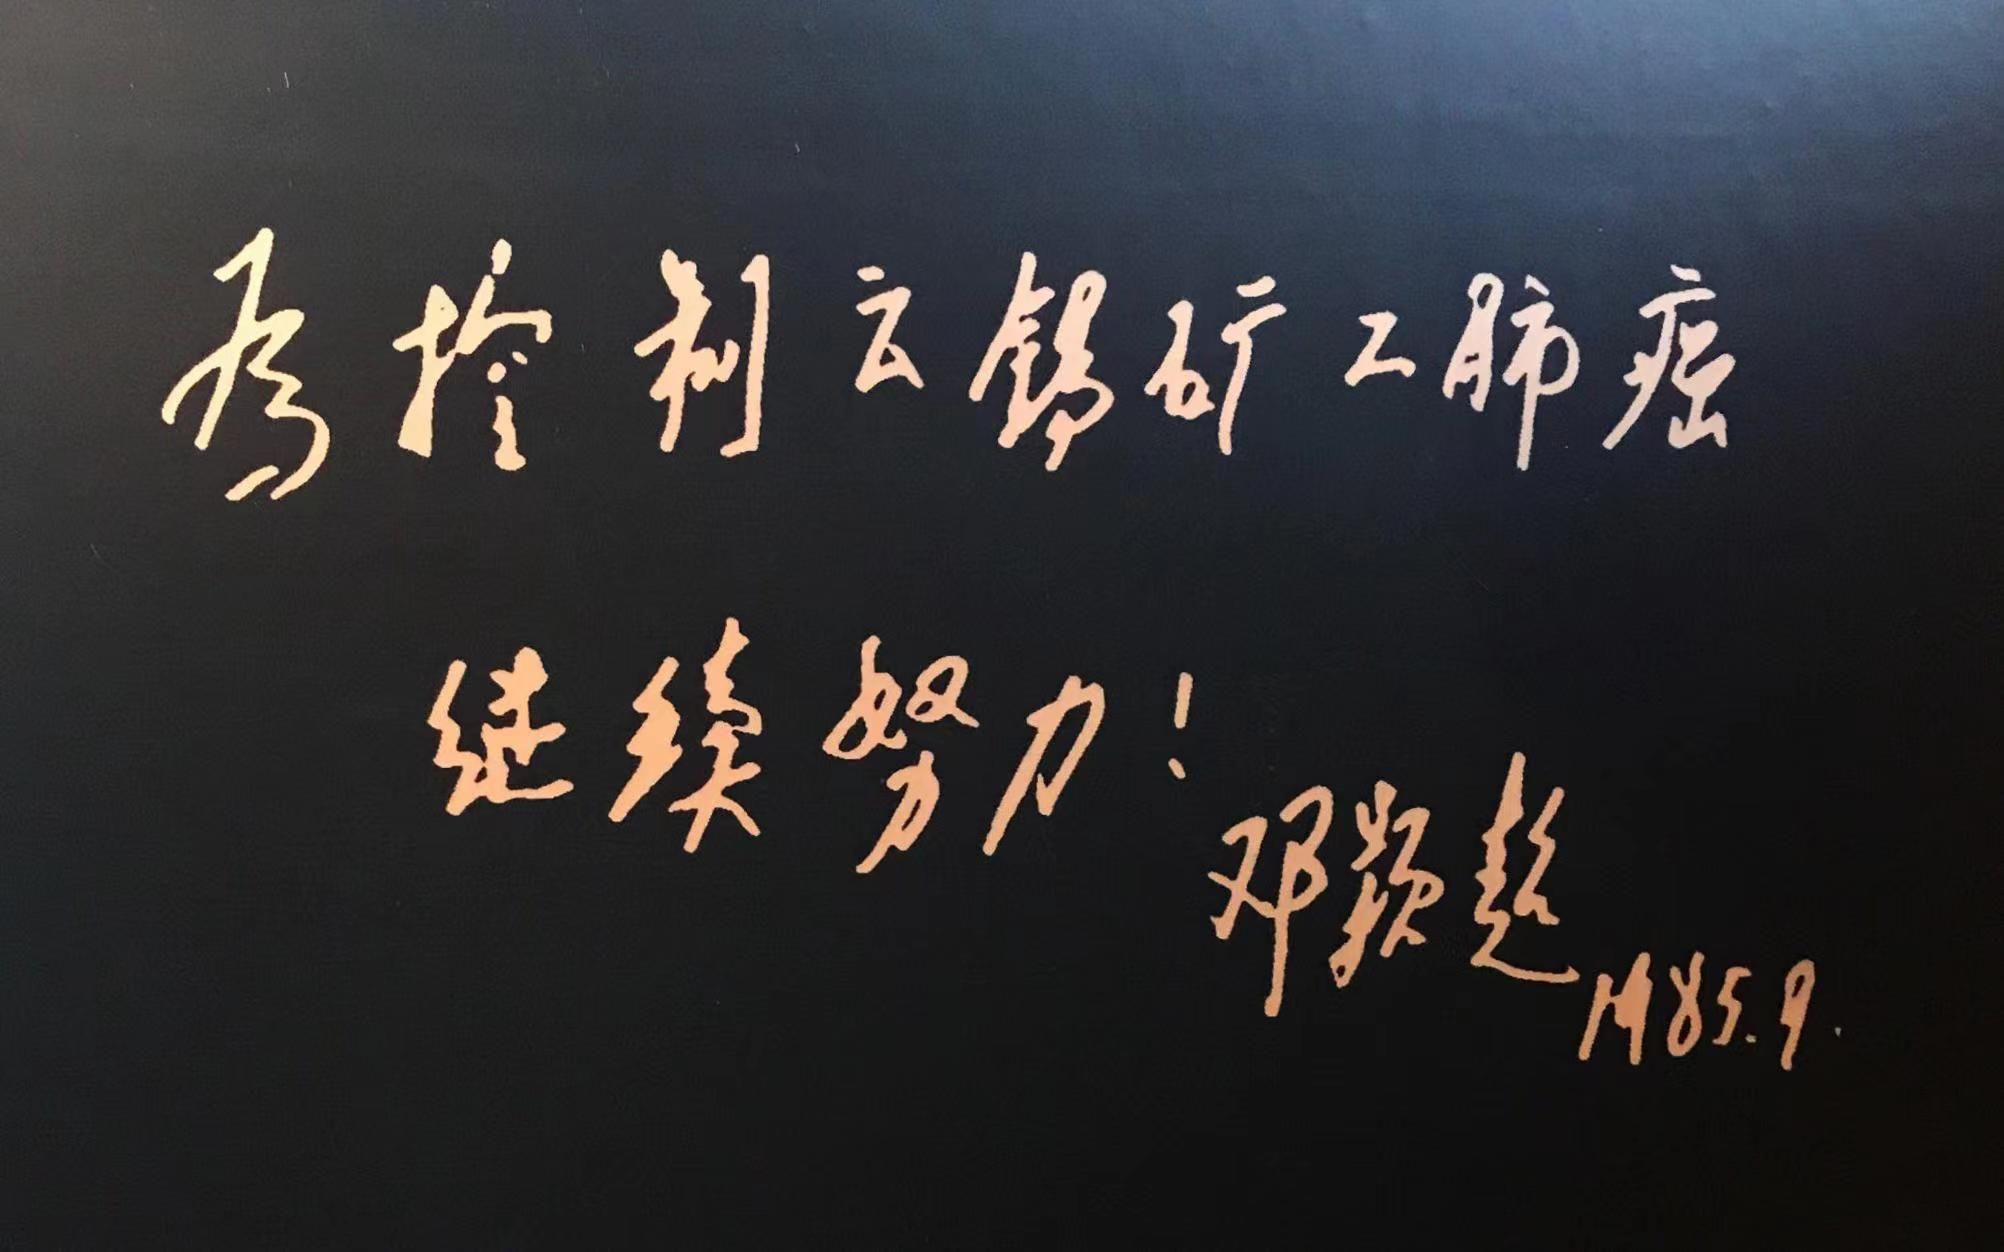 为控制云锡矿工肺癌
继续努力！
邓颖超
1985.9.